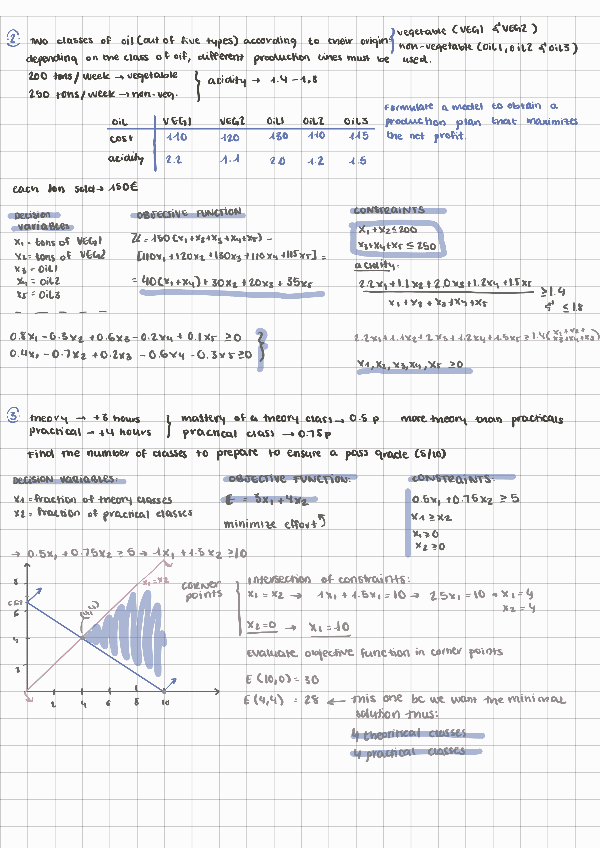 2. Two classes of oil (out of five types) according to their origin } vegetable (VEG1 & VEG2)
non-vegetable (OIL1, OIL2 & OIL3)
depending on the class of oil, different production lines must be used.
200 tons/week → vegetable } acidity → 1.4 - 1.8
250 tons/week → non-veg.
Formulate a model to obtain a
production plan that maximizes
the net profit.
OIL VEG1 VEG2 OIL1 OIL2 OIL3
cost 110 120 130 110 115
acidity 2.2 1.1 2.0 1.2 1.5
each ton sold → 150€
DECISION VARIABLES:
x1 = tons of VEG1
x2 = tons of VEG2
x3 = OIL1
x4 = OIL2
x5 = OIL3
OBJECTIVE FUNCTION
Z = 150(x1+x2+x3+x4+x5) -
[110x1+120x2+130x3+110x4+115x5] =
= 40(x1+x4)+30x2+20x3+35x5
CONSTRAINTS
x1+x2≤200
x3+x4+x5 ≤ 250
acidity:
2.2x1+1.1x2+2.0x3+1.2x4+1.5x5
x1+x2+x3+x4+x5
≥1.4
& ≤1.8
0.8x1-0.3x2+0.6x3-0.2x4+0.1x5 ≥0
0.4x1-0.7x2+0.2x3-0.6x4-0.3x5≥0
2.2x1+1.1x2+2x3+1.2x4+1.5x5 ≥1.4(x1+x2+x3+x4+x5)
x1,x2,x3,x4,x5 ≥0
3. theory → +3 hours } mastery of a theory class → 0.5 p more theory than practicals
practical → +4 hours practical class → 0.75p
Find the number of classes to prepare to ensure a pass grade (5/10)
DECISION VARIABLES:
x1 = fraction of theory classes
x2 = fraction of practical classes
OBJECTIVE FUNCTION:
E = 3x1+4x2
minimize effort
CONSTRAINTS:
0.5x1+0.75x2 ≥ 5
x1≥x2
x1≥0
x2≥0
→ 0.5x1+0.75x2 ≥ 5 → 1x1+1.5x2 ≥10
8
x1=x2
6
(4,4)
4
2
2 4 6 8 10
CORNER POINTS
Intersection of constraints:
x1=x2 → 1x1+1.5x1=10 → 2.5x1=10 → x1=4
x2=4
x2=0 → x1=10
Evaluate objective function in corner points
E(10,0)=30
E(4,4) = 28 ← this one bc we want the minimal
solution thus:
4 theoretical classes
4 practical classes